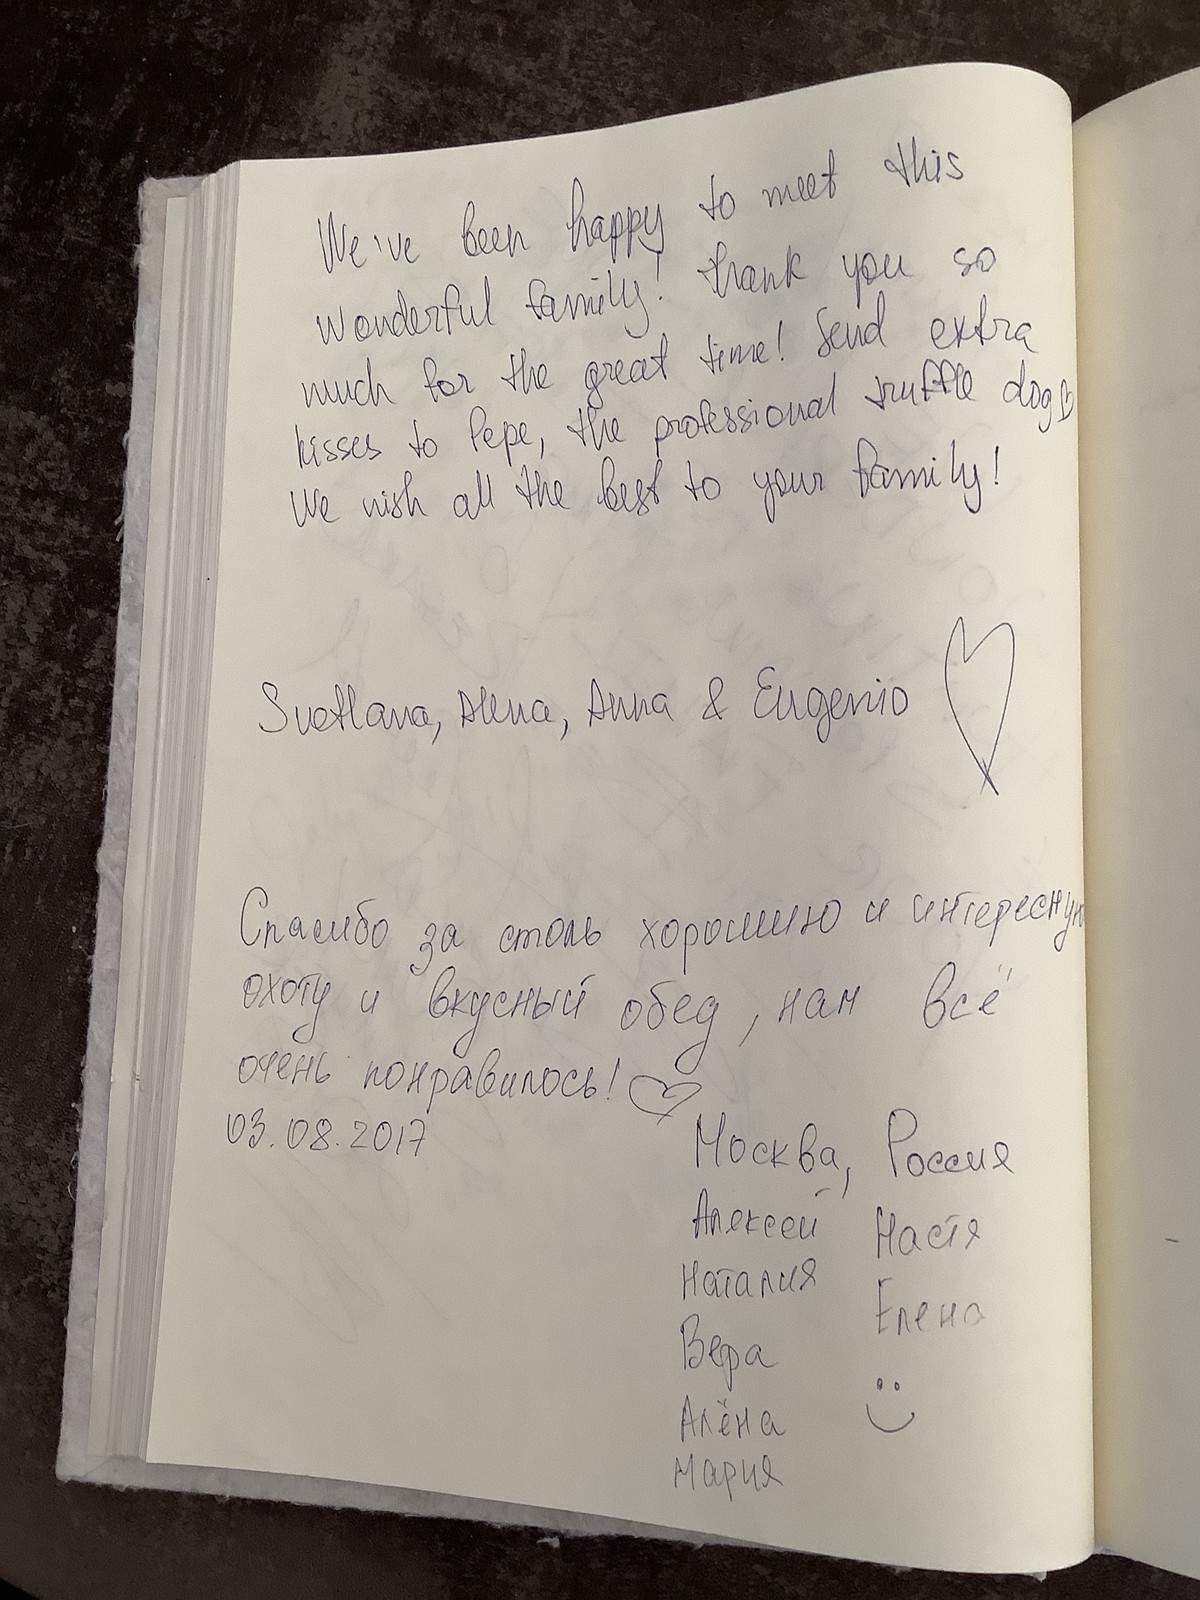 We've been happy to meet this
wonderful family! thank you so
much for the great time! Send extra
kisses to Pepe, the professional truffle dog
We wish all the best to your family!
Svetlana, Alena, Anna & Eugenio
Спасибо за столь хорошую и интересную
охоту и вкусный обед, нам всё
очень понравилось!
03.08.2017
Москва, Россия
Алексей Настя
Наталия
Елена
Вера
Алёна
Мария